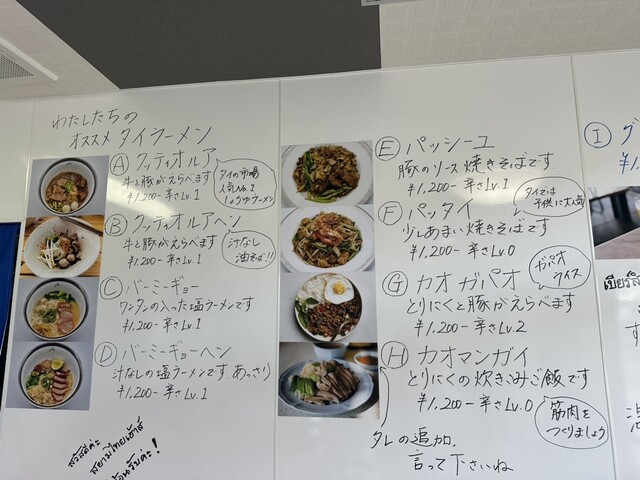 わたしたちの
オススメ タイラーメン
Ⓐ クッティオルア
牛と豚がえらべます
¥1,200- 辛さLv.1
タイの市場
人気No.1
しょうゆラーメン
Ⓑ クッティオルアヘン
牛と豚がえらべます
¥1,200- 辛さLv.1
汁なし
油そば!!
Ⓒ バーミーギョー
ワンタンの入った塩ラーメンです
¥1,200- 辛さLv.1
Ⓓ バーミーギョーヘン
汁なしの塩ラーメンです あっさり
¥1,200- 辛さLv.1
สวัสดีค่ะ
Ⓔ パッシーユ
豚のソース焼きそばです
¥1,200- 辛さLv.1
Ⓕ パッタイ
少しあまい焼きそばです
¥1,200- 辛さLv.0
タイでは
子供に大人気
Ⓖ カオガパオ
とりにくと豚がえらべます
¥1,200- 辛さLv.2
ガパオ
ライス
Ⓗ カオマンガイ
とりにくの炊きこみご飯です
¥1,200- 辛さLv.0
筋肉を
つくりましょう
タレの追加、
言って下さいね
Ⓘ グ